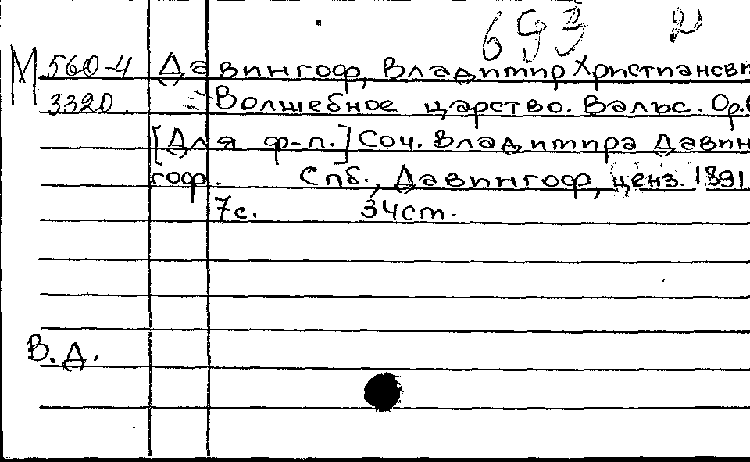 693 2
М 560-4 Давингоф, Владимир Христианови
3320 Волшебное царство. Вальс. Ор.
[Для ф-п.] Соч. Владимира Давин
гоф. Спб., Давингоф, ценз. 1891
7с. 34ст.
В.Д.